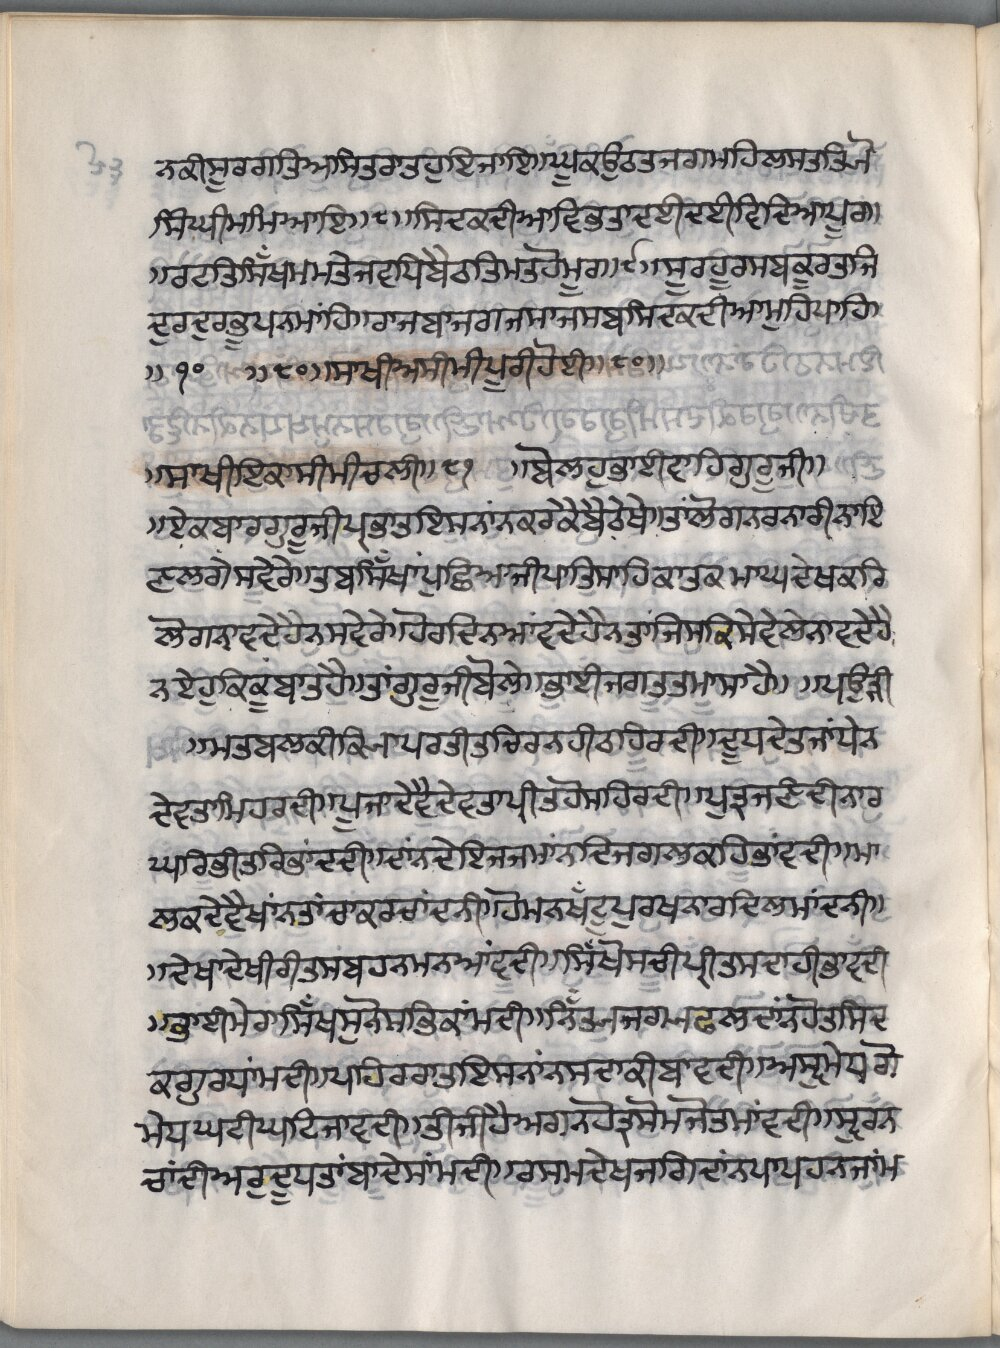 ਨਕੀਸੂਰਗਤਿਆਸਿਤੁਰਾਤਹੁਇਜਾਇ॥ਘੂਕਉਠਤਜਗਮਹਿਲਸਤਤਿਜੋ
ਸਿੰਘੀਮਸਿਆਇ॥੮॥ਸਿਦਕਦੀਆਵਿਭੁਤਾਦਈਦਈਵਿਦਿਆਪੂਰ॥
॥ਰਟਤਿਸਿੱਖਮਮਤੇਜਵਧਿਬੈਠਤਿਮਤਹੋਮੂਰ॥੯॥ਸੂਰਹੂਰਸਬਕੂਰਤਜਿ
ਦੂਰਦੂਰਭੂਪਨਮਾਂਹਿ॥ਰਾਜਬਾਜਗਜਸਾਜਸਬਸਿਦਕਦੀਆਮੁਹਿਪਾਹਿ॥
॥੧੦॥੮੦॥ਸਾਖੀਅਸੀਮੀਪੂਰੀਹੋਈ॥੮੦॥
॥ਸਾਖੀਇਕਾਸੀਮੀਚਲੀ॥੮੧॥ਬੋਲਹੁਭਾਈਵਾਹਿਗੁਰੂਜੀ॥
॥ਏਕਬਾਰਗੁਰੂਜੀਪ੍ਰਭਾਤਇਸਨਾਂਨਕਰਕੈਬੈਠੇਥੇ॥ਤਾਂਲੋਗਨਰਨਾਰੀਨਾਇ
ਣਲਗੇਸਵੇਰੇ॥ਤਬਸਿੱਖਾਂਪੁਛਿਆਜੀਪਾਤਿਸਾਹਿਕਾਤਕਮਾਘਦੇਖਕਰਿ
ਲੋਗਨਾਵਦੇਹੈਨਸਵੇਰੇ॥ਹੋਰਦਿਨਆਂਵਦੇਹੈਨਤਾਂਜਿਸਕਿਸੇਵੇਲੇਨਾਵਦੇਹੈ
ਨਏਹੁਕਿਕੂੰਬਾਤਹੈ॥ਤਾਂਗੁਰੂਜੀਬੋਲੇ॥ਭਾਈਜਗਤੁਤਮਾਸਾਹੈ॥ ॥ਪਉੜੀ
॥ਮਤਬਲਕੀਕਿਆਪਰਤੀਤਚਿਰਨਹੀਠਹਿਰਦੀ॥ਦੂਧਦੇਤਜਾਂਧੇਨ
ਦੇਵਤਾਮਿਹਰਦੀ॥ਪੂਜਾਦੇਵੈਦੇਵਤਾਪ੍ਰੀਤਹੋਸਹਿਰਦੀ॥ਪੂਤ੍ਰਜਣੇਦੀਨਾਰ
ਘਰਿਭੀਤਰਿਭਾਂਵਦੀ॥ਦਾਂਨਦੇਇਜਜਮਾਂਨਦਿਜਗਲਕਹਿਭਾਂਵਦੀ॥ਮਾ
ਲਕਦੇਵੈਖਾਂਨਤਾਂਚਾਕਰਚਾਂਦਨੀ॥ਹੋਮਨਖੱਟੂਪੁਰਖਨਾਰਦਿਲਮਾਂਦਨੀ॥
॥ਦੇਖਾਦੇਖੀਰੀਤਸਬਹਨਮਨਆਂਵਦੀ॥ਸਿੱਖੋਸਚੀਪ੍ਰੀਤਸਦਾਹੀਭਾਵਦੀ
॥ਭਾਈਮੇਰਾਸਿੱਖਸੁਨੋਸਭਿਕਾਂਮਦੀ॥ਨਿੱਤਅਜਗਅਛਲਦਾਂਨਹੋਤਸਿਦ
ਕਗੁਰਧਾਂਮਦੀ॥ਪਾਹਿਰਰਾਤਇਸਨਾਂਨਸਦਾਕੀਬਾਵਦੀ॥ਅਸੂਮੇਧਗੋ
ਮੇਧਘਟੀਘਟਿਜਾਵਦੀ॥ਤੀਜੀਹੈਅਗਨਹੋਤ੍ਰਸੋਮਜੋਤਮਾਂਵਦੀ॥ਸੂਰਨ
ਚਾਂਦੀਅਰੁਦੂਧਤਾਂਬਾਦੇਸਾਂਮਦੀ॥ਰਸਮਦੇਖਜਗਿਦਾਂਨਪਾਪਹਨਜਾਂਮ